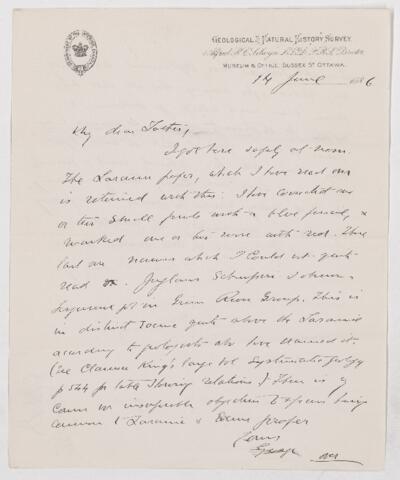 GEOLOGICAL & NATURAL HISTORY SURVEY
Alfred R. C. Selwyn L.L.D. F.R.S. Director
MUSEUM & OFFICE, SUSSEX ST OTTAWA.
14 June 1886
My dear Father,
I got here safely at noon.
The Laramie paper, which I have read over
is returned with this. I have corrected one
or two small points with a blue pencil, &
marked one or two more with red. These
last are names which I could not quite
read
in Green River Group. This is
in distinct Eocene quite above the Laramie
according to geologists who have examined it.
(See Clarence King's large vol Systematic Geology
p 544 for table showing relations) There is of
course no insuperable objection to species being
common to Laramie & Eocene proper
Yours
George
over